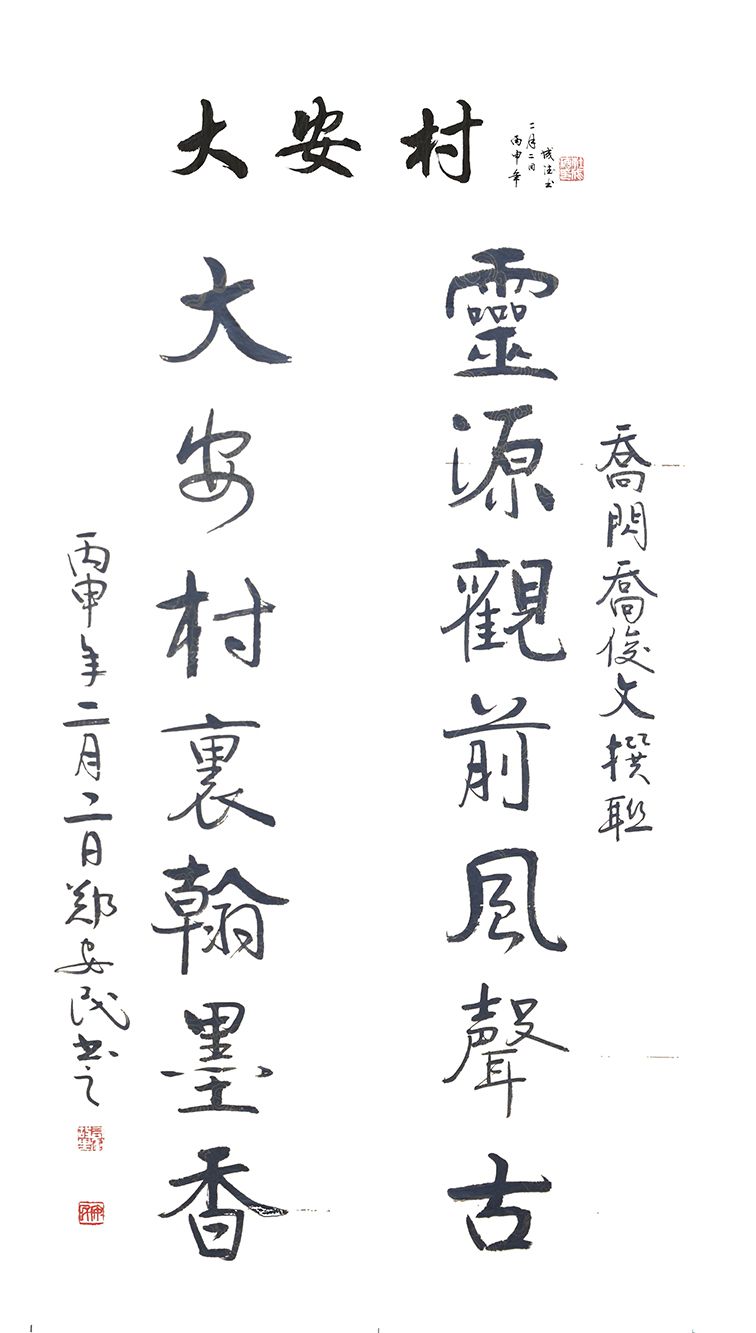 大安村
丙申年
二月二日
喬閃喬俊文撰聯
靈源觀前風聲古
大安村裏翰墨香
丙申年二月二日郑安民书之